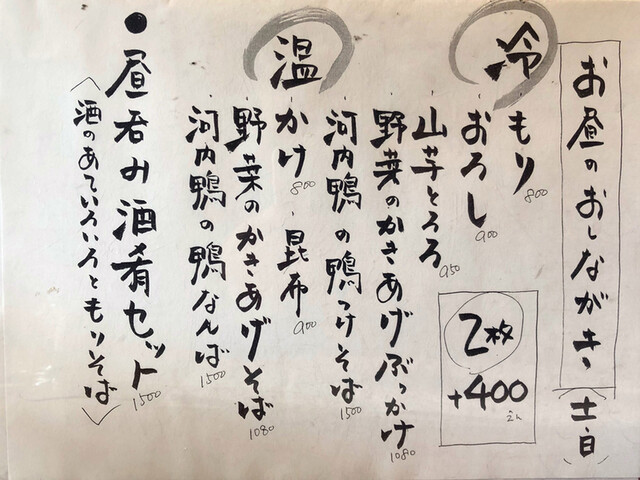 お昼のおしながき(土日)
冷
もり 800
おろし 900
山芋とろろ 950
野菜のかきあげぶっかけ 1080
河内鴨の鴨つけそば 1500
2枚
+400
温
かけ 800
昆布 900
野菜のかきあげそば 1080
河内鴨の鴨なんば 1500
●昼呑み酒肴セット 1500
〈酒のあていろいろともりそば〉